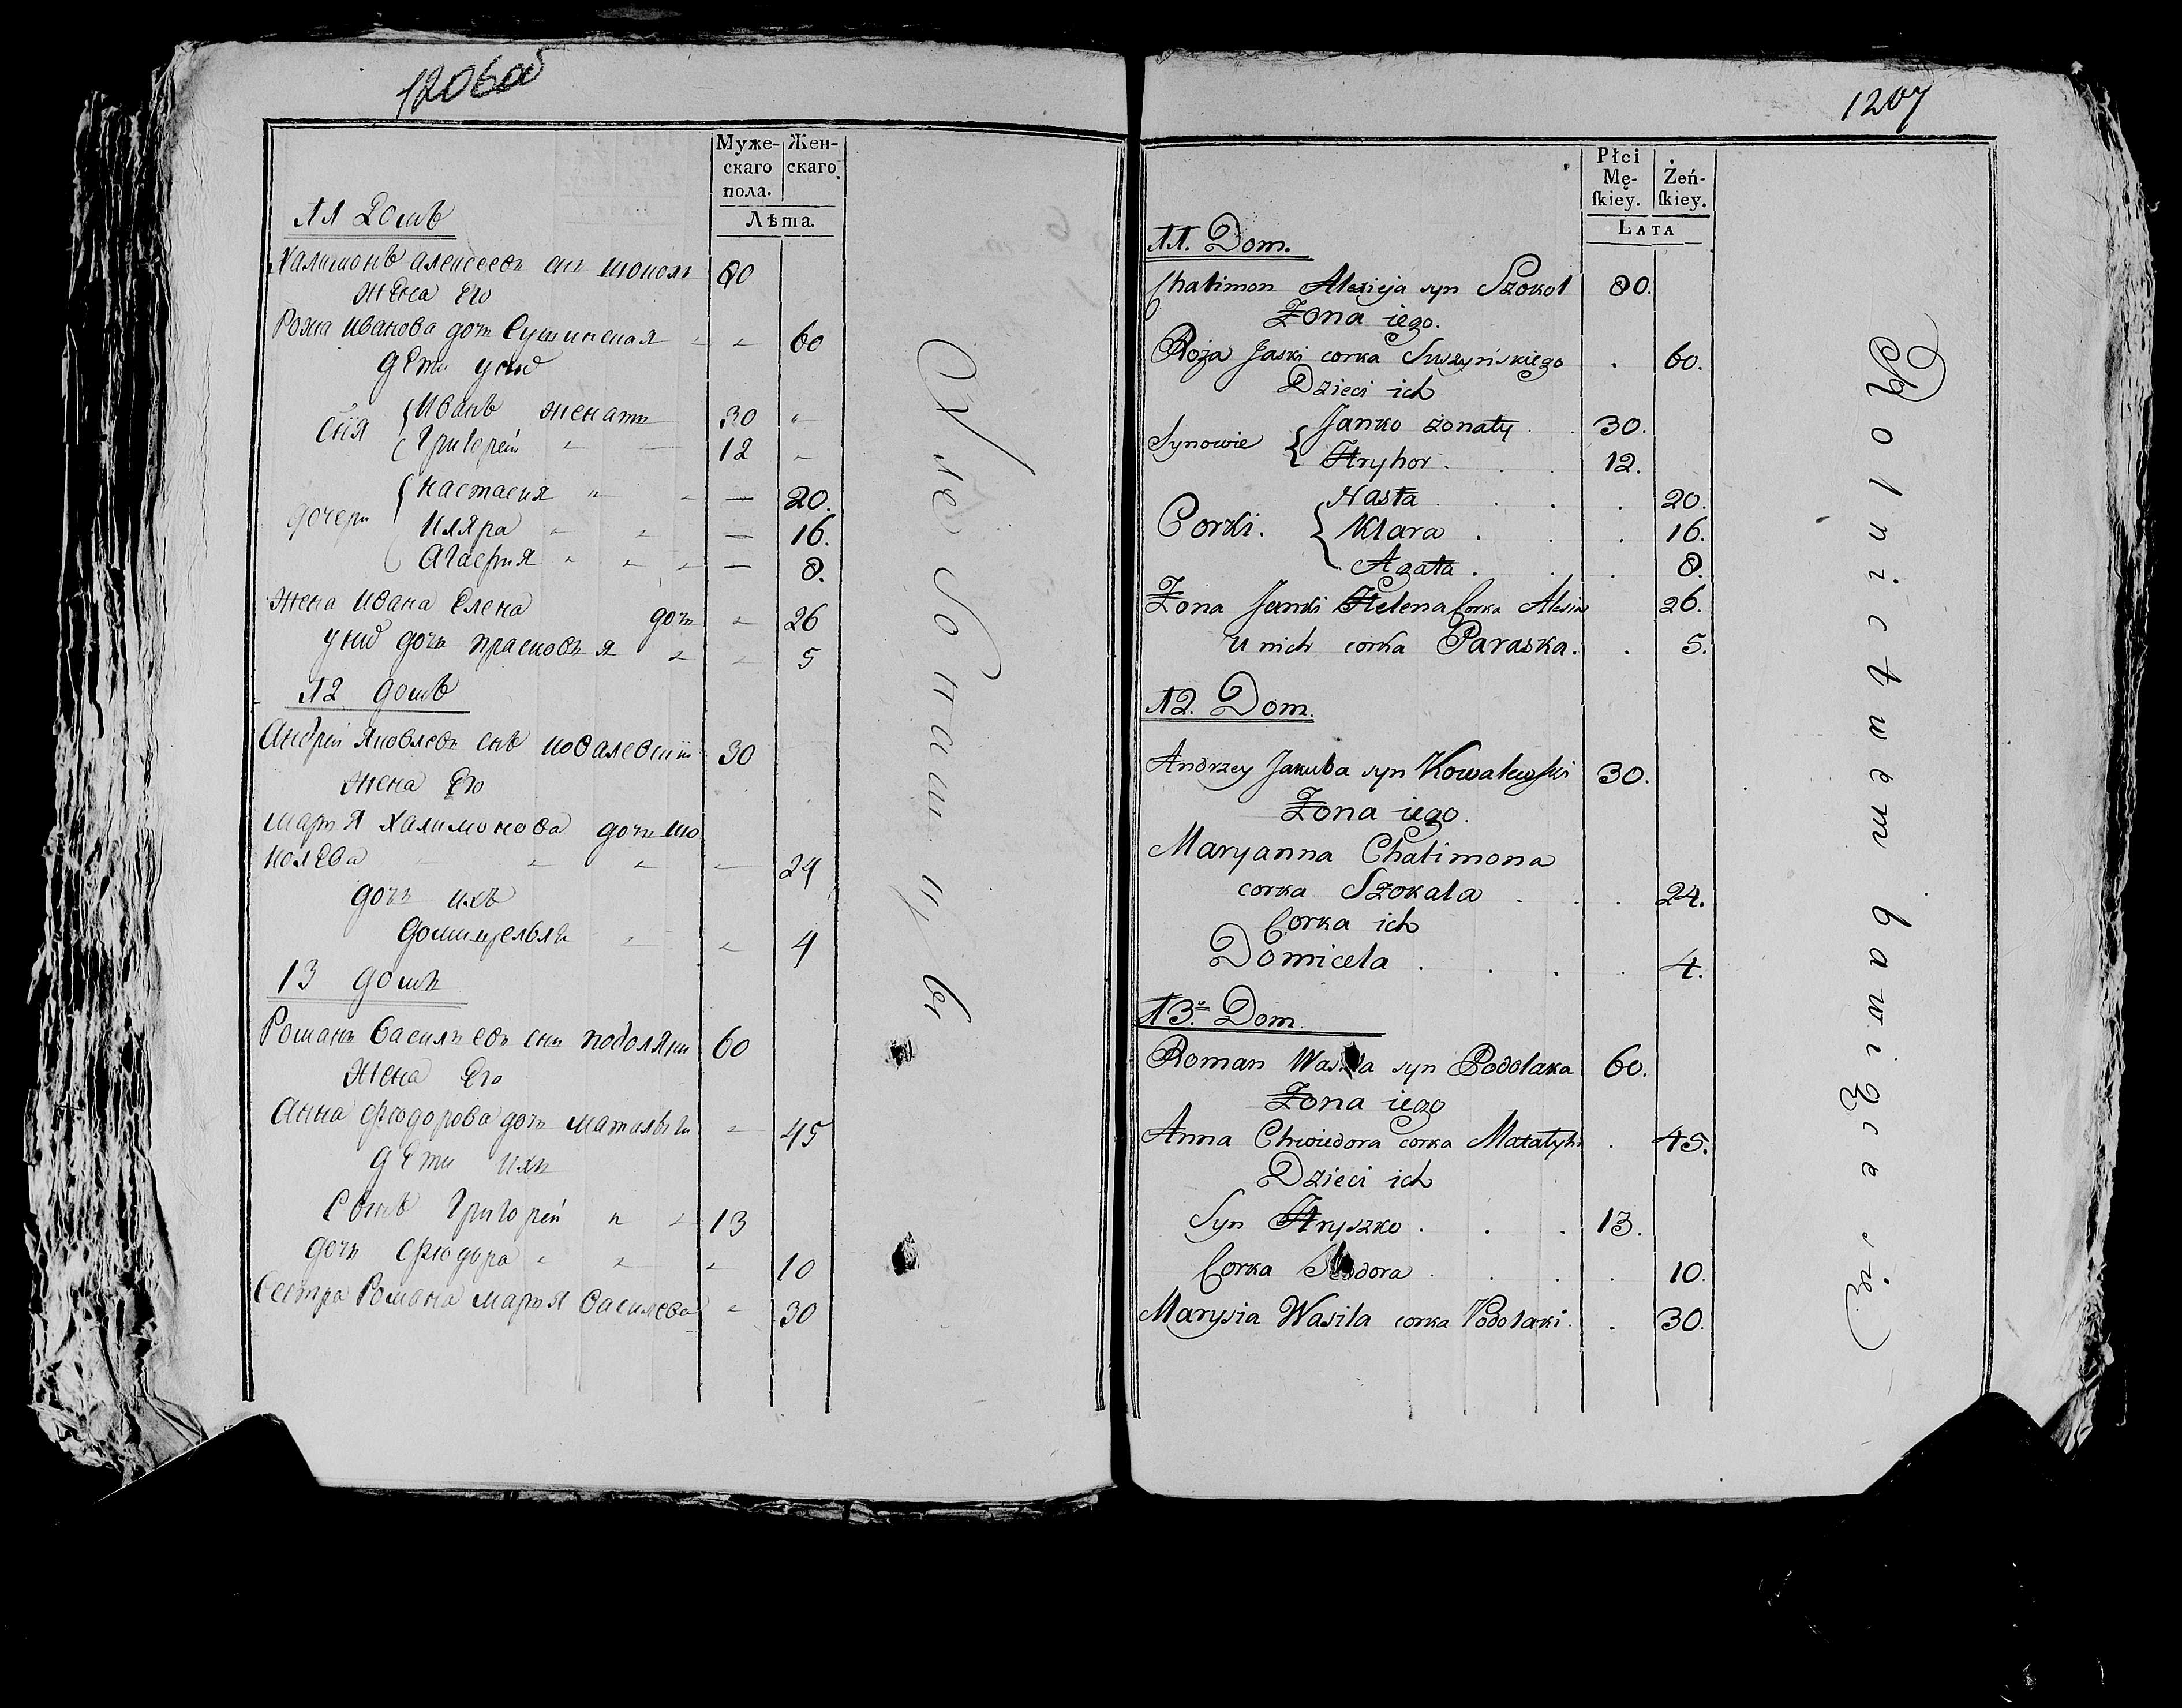 1206об
Муже-
скаго
пола.
Жен-
скаго.
Лѣта.
11 Домъ
Халимонъ Алексеевъ снъ Шоколъ 80
жена Его
Рожа Иванова дочь Сушинская 60
дети у них
сня Иванъ женатъ 30
Григорей 12
дочери Настасия 20.
Кляра 16.
Агафия 8.
жена Ивана Елена дочь 26
у них дочь Прасковья 5
12 домъ
Андрей Яковлевъ снъ Ковалевский 30
жена Его
Марья Халимонова дочь Шо
колева 24
дочь ихъ
Домицеля 4
13 домъ
Романъ Васильевъ снъ Подоляк 60
жена Его
Анна Фиодорова дочь 45
дети ихъ
Сынъ Григорей 13
дочь Фиодора 10
Сестра Романа Марья Васильева 30
Хлебопашцы
1207
Płci
Mę-
ſkiey.
Żeń-
ſkiey.
LATA
11. Dom.
Chalimon Alexieja syn Szokol 80.
Żona iego.
Roża Jaski corka Suszyńskiego 60.
Dzieci ich
Synowie Janko żonaty 30.
Hryhor 12.
Corki. Nasta 20.
Klara 16.
Agata 8.
Żona Janki Helena Corka Alexia 26.
u nich corka Paraska. 5.
12. Dom.
Andrzey Jakuba syn Kowalewſki 30.
Żona iego.
Maryanna Chalimona
corka Szokala 24.
Corka ich
Domicela 4.
13. Dom.
Roman Wasila syn Podolaka 60.
Żona iego
Anna Chwiedora corka Matatyki 45.
Dzieci ich
Syn Hryszko 13.
Corka 10.
Marysia Wasila corka Podolaki. 30.
Rolnictwem bawiące się.